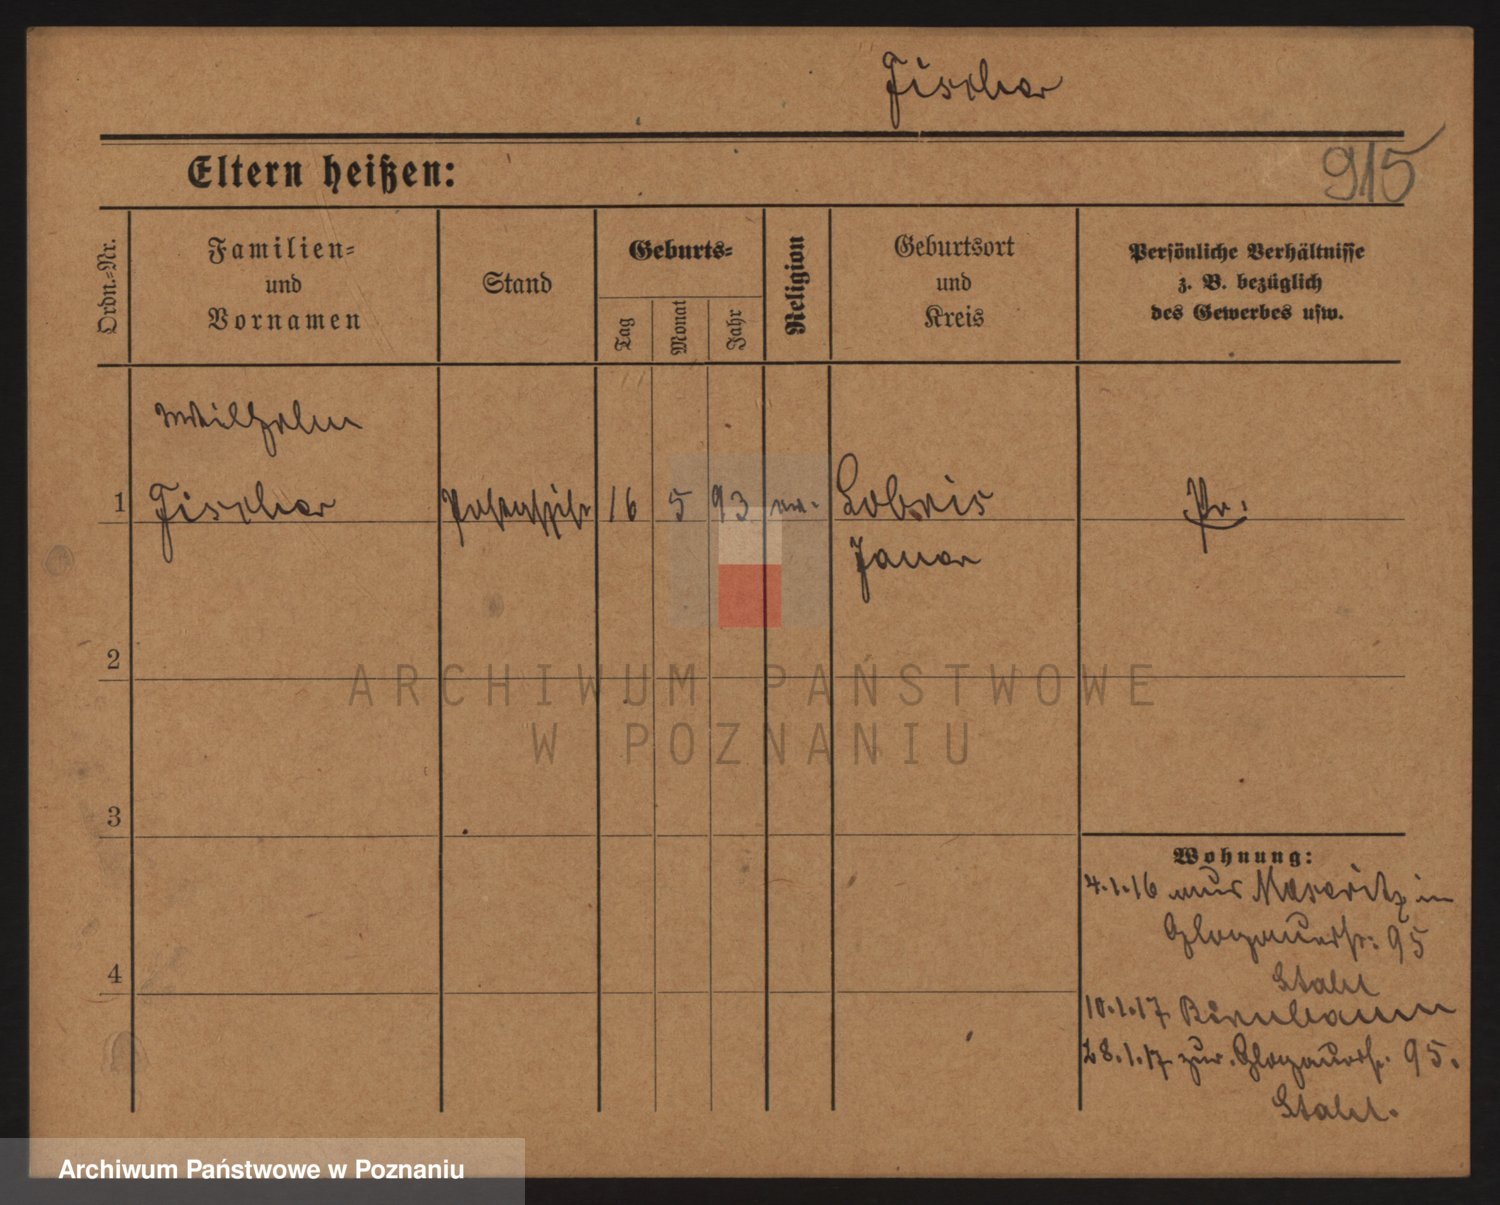 Fischer
Eltern heißen:
915
Ordn.-Nr.
Familien-
und
Vornamen
Stand
Geburts-
Tag
Monat
Jahr
Religion
Geburtsort
und
Kreis
Persönliche Verhältnisse
z. B. bezüglich
des Gewerbes usw.
Wilhelm
1
Fischer
16
5
93
Lobris
Pr.
Jauer
2
ARCHIWUM PAŃSTWOWE
W POZNANIU
3
Wohnung:
4.1.16 aus Meseritz in
Glogauerstr. 95
4
Stahl
10.1.17 Birnbaum
28.1.17 zur. Glogauerstr. 95.
Stahl.
Archiwum Państwowe w Poznaniu